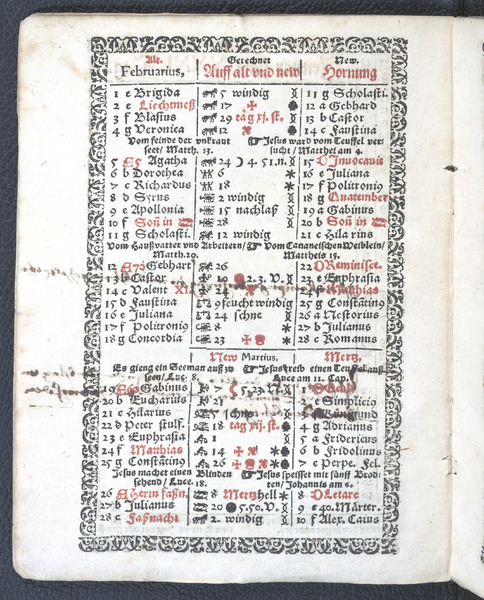 Alt. Gerechnet New.
Februarius, Auff alt vnd new Hornung
1 e Brigida 5 windig 11 g Scholasti.
2 e Liechtmeß 17 12 a Gebhard
3 f Blasius 29 tag xj. st. 13 b Castor
4 g Veronica 12 14 c Faustina
Vom feinde der vnkraut Jesus ward vom Teuffel ver
seet/ Matth. 13. sucht/ Matthei am 4.
5 Agatha 24 4 51.n. 15 D Innocavit
6 b Dorothea 6 16 e Juliana
7 c Richardus 18 17 f Politronig
8 d Syrus 2 windig 18 g Quatember
9 e Apollonia 15 nachlaß 19 a Gabinus
10 f Soñ in 28 20 b Soñ in
11 g Scholasti. 12 windig 21 c Hilarius
Vom Haußvatter vnd Arbeitern/ Vom Cananeischen Weiblein/
Matth. 20. Mattheis 15.
12 Gebhart 26 22 D Reminisce.
13 b Castor 10 2.3.V. 23 e Euphrasia
14 c Valent 24 f Matthias
15 d Faustina 9 feucht windig 25 g Constãting
16 e Juliana 24 schne 26 a Nestorius
17 f Politronig 9 27 b Julianus
18 g Concordia 23 28 c Romanus
New Martius, Mertz.
Es gieng ein Seeman auß zu Jesus treib einen Teuffel auß
seen/ Luc. 8. Luce am 11. Cap.
19 Gabinus 7 5.23.V. 1
20 b Eucharius 21 2 e Simplicio
21 c Hilarius 5 schne 3 f Kungund
22 d Peter stulf. 18 tag xij. st. 4 g Adrianus
23 e Euphrasia 1 5 a Fridericus
24 f Matthias 14 6 b Fridolinus
25 g Constãting 26 7 c Perpe. Fel.
Jesus machet einen Blinden Jesus speisset mit fünff Brod
sehend/ Luce. 18. ten/ Johannis am 6.
26 A Herrn faßn. 8 Mertz hell 8 D Letare
27 b Julianus 20 5.50.V. 9 e 40. Märter.
28 c Faßnacht 2. windig 10 f Alex. Caius